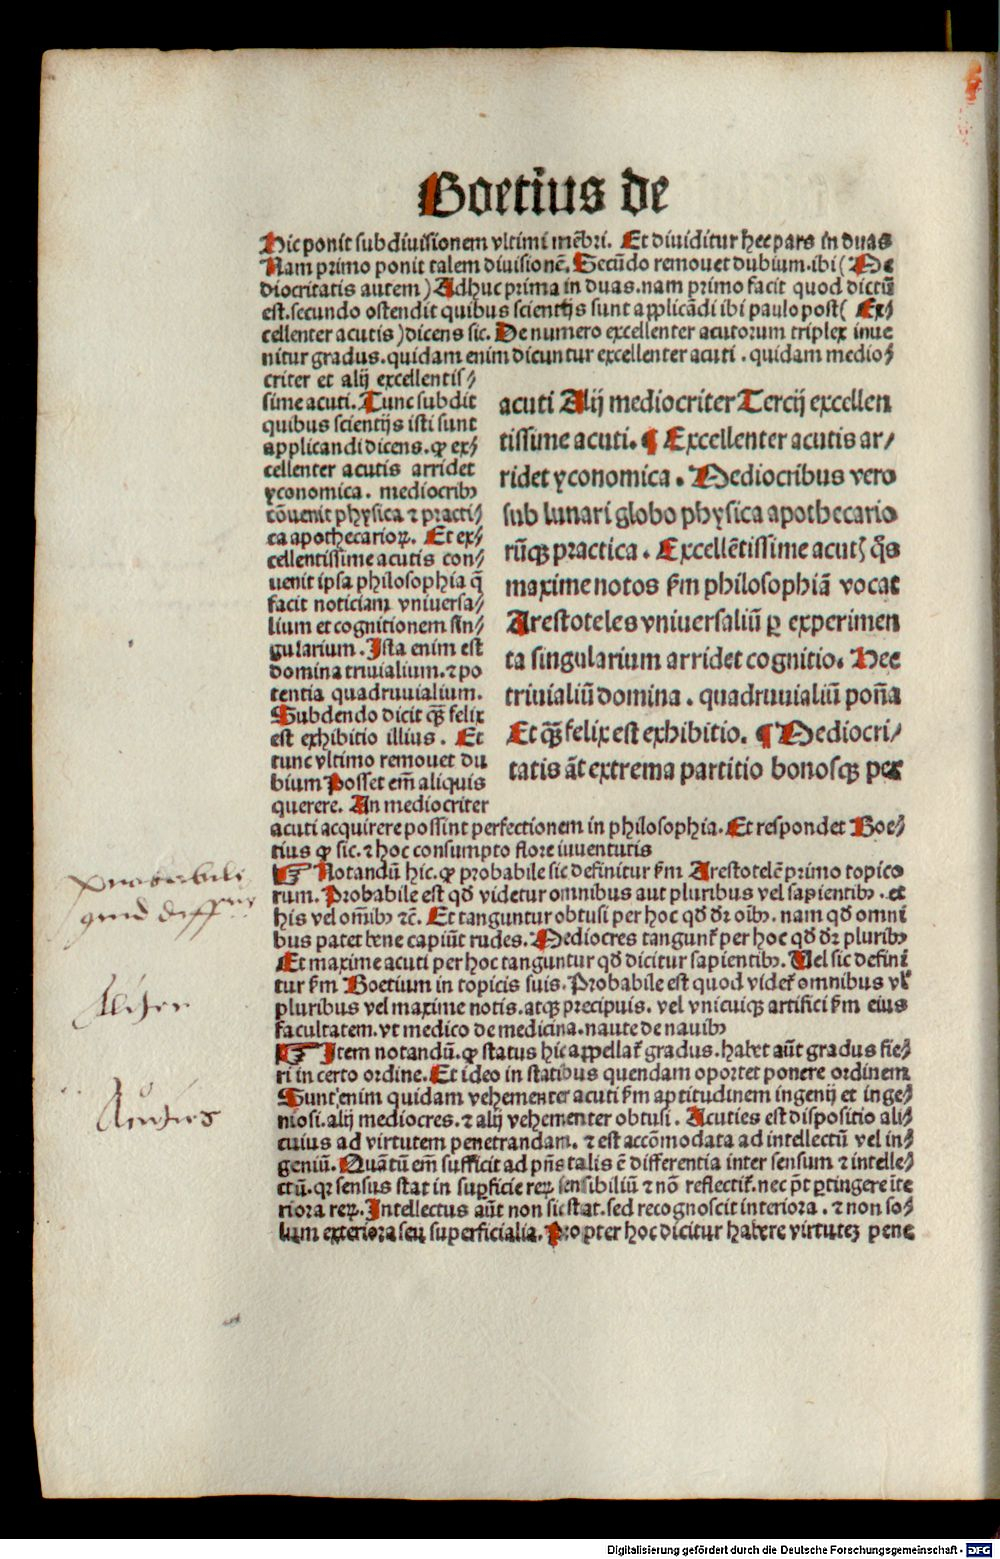 Boetius de
Hic ponit subdiuisionem vltimi mēbri. Et diuiditur hec pars in duas
Nam primo ponit talem diuisionē. Secūdo remouet dubium. ibi (Me
diocritatis autem) Adhuc prima in duas. nam primo facit quod dictū
est. secundo ostendit quibus scientijs sunt applicādi ibi paulo post( Ex⸗
cellenter acutis) dicens sic. De numero excellenter acutorum triplex inue
nitur gradus. quidam enim dicuntur excellenter acuti . quidam medio⸗
criter et alij excellentis⸗
sime acuti. Tunc subdit
quibus scientijs isti sunt
applicandi dicens. ꝙ ex⸗
cellenter acutis arridet
yconomica. mediocribꝫ
cōuenit physica ⁊ practi⸗
ca apothecarioꝝ. Et ex⸗
cellentissime acutis con⸗
uenit ipsa philosophia q̄
facit noticiam vniuersa⸗
lium et cognitionem sin⸗
gularium. Ista enim est
domina triuialium. ⁊ po
tentia quadruuialium.
Subdendo dicit qꝫ felix
est exhibitio illius. Et
tunc vltimo remouet du
bium Posset em̄ aliquis
querere. An mediocriter
acuti Alij mediocriter Tercij excellen
tissime acuti. ¶ Excellenter acutis ar⸗
ridet yconomica. Mediocribus vero
sub lunari globo physica apothecario
rūqꝫ practica. Excellētissime acutꝭ q̄s
maxime notos ẜm philosophiā vocat
Arestoteles vniuersaliū ꝑ experimen
ta singularium arridet cognitio. Hec
triuialiū domina. quadruuialiū poña
Et qꝫ felix est exhibitio. ¶ Mediocri⸗
tatis āt extrema partitio bonosqꝫ per
acuti acquirere possint perfectionem in philosophia. Et respondet Boe⸗
tius ꝙ sic. ⁊ hoc consumpto flore iuuentutis
☞ Notandū hic. ꝙ probabile sic definitur ẜm Arestotelē primo topico
rum. Probabile est qđ videtur omnibus aut pluribus vel sapientibꝫ. et
his vel om̄ibꝫ ⁊c̄. Et tanguntur obtusi per hoc qđ dr̄ oībꝫ. nam qđ omni
bus patet bene capiūt rudes. Mediocres tangunt᷑ per hoc qđ dr̄ pluribꝫ
Et maxime acuti per hoc tanguntur qđ dicitur sapientibꝫ. Vel sic defini
tur ẜm Boetium in topicis suis. Probabile est quod videt᷑ omnibus vł
pluribus vel maxime notis. atqꝫ precipuis. vel vnicuiqꝫ artifici ẜm eius
facultatem. vt medico de medicina. naute de nauibꝫ
☞ Item notandū. ꝙ status hic appellat᷑ gradus. habet aūt gradus fie⸗
ri in certo ordine. Et ideo in statibus quendam oportet ponere ordinem
Sunt enim quidam vehementer acuti ẜm aptitudinem ingenij et inge⸗
niosi. alij mediocres. ⁊ alij vehementer obtusi. Acuties est dispositio ali⸗
cuius ad virtutem penetrandam. ⁊ est accōmodata ad intellectū vel in⸗
geniū. Quātū em̄ sufficit ad pn̄s talis ē differentia inter sensum ⁊ intelle⸗
ctū. qꝛ sensus stat in suꝑficie reꝝ sensibiliū ⁊ nō reflectit᷑. nec p̄t ꝑtingere īte
riora reꝝ. Intellectus aūt non sic stat. sed recognoscit interiora. ⁊ non so⸗
lum exteriora seu superficialia. Propter hoc dicitur habere virtutēꝫ pene
probabile
quid
Aliter
Acuties
Digitalisierung gefördert durch die Deutsche Forschungsgemeinschaft - DFG